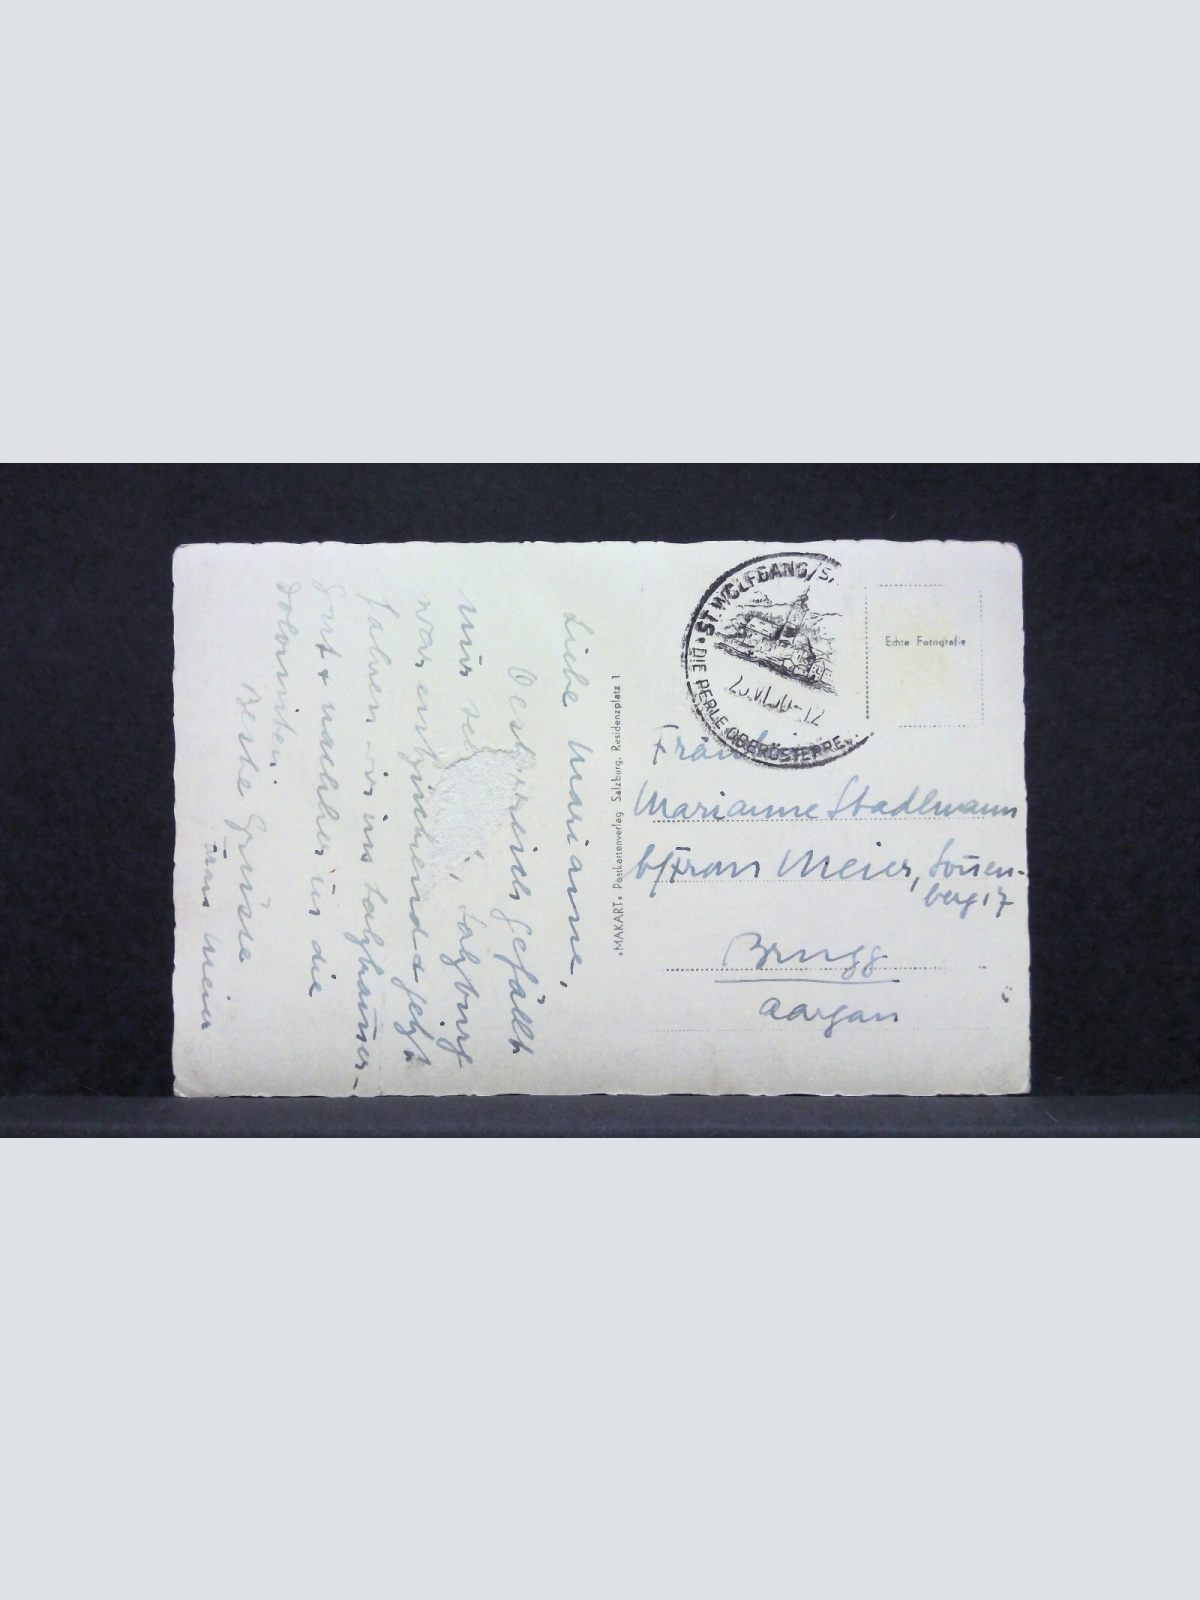 Liebe Marianne,
Oesterreich gefällt
mir sehr, Salzburg
war entzückend & jetzt
fahren wir ins Salzkammer-
gut & nachher in die
Dolomiten.
Beste Grüsse
Meier
"MAKART" Postkartenverlag Salzburg, Residenzplatz 1
ST. WOLFGANG/S
DIE PERLE OBERÖSTERRE
VI.50-12
Echte Fotografie
Fräulein
Marianne Stadlmann
b/Frau Meier, Sonnen-
berg 17
Brugg
Aargau